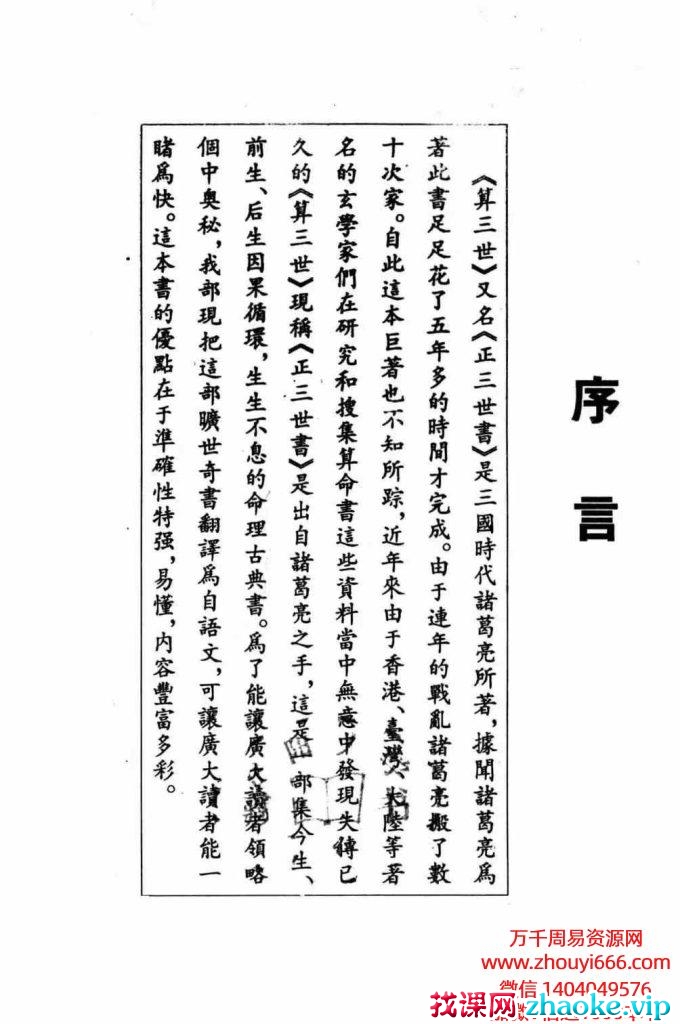 序言
《算三世》又名《正三世書》是三國時代諸葛亮所著，據聞諸葛亮爲
著此書足足花了五年多的時間才完成。由于連年的戰亂諸葛亮搬了數
十次家。自此這本巨著也不知所踪，近年來由于香港、臺灣、大陸等著
名的玄學家們在研究和搜集算命書這些資料當中無意中發現失傳已
久的《算三世》現稱《正三世書》是出自諸葛亮之手，這是一部集今生、
前生、后生因果循環，生生不息的命理古典書。爲了能讓廣大讀者領略
個中奧秘，我部現把這部曠世奇書翻譯爲自語文，可讓廣大讀者能一
睹爲快。這本書的優點在于準確性特强，易懂，内容豐富多彩。
万千周易资源网
www.zhouyi666.com
微信 1404049576
找课网zhaoke.vip